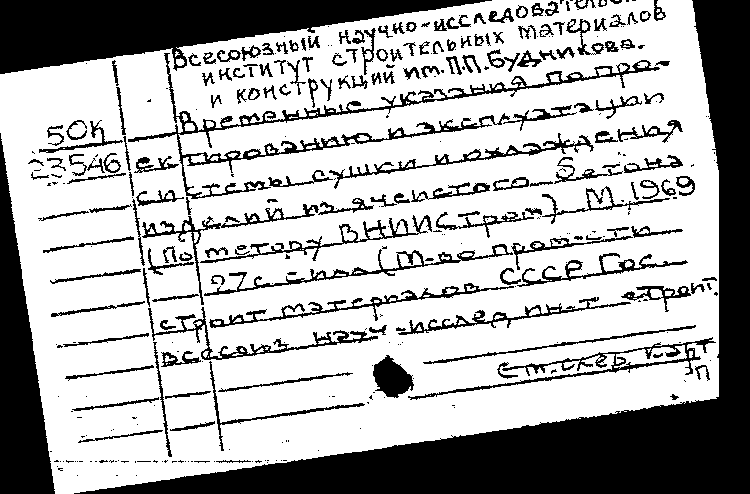 Всесоюзный научно-исследователь
институт строительных материалов
и конструкций им. П.П. Будникова.
50К Временные указания по про-
23546 ектированию и эксплуатации
системы сушки и охлаждения
изделий из ячеистого бетона
(По методу ВНИИСтром) М. 1969
27 с. с илл (М-во пром-сти
строит материалов СССР Гос.
всесоюз науч-исслед ин-т строит.
См. след. карт